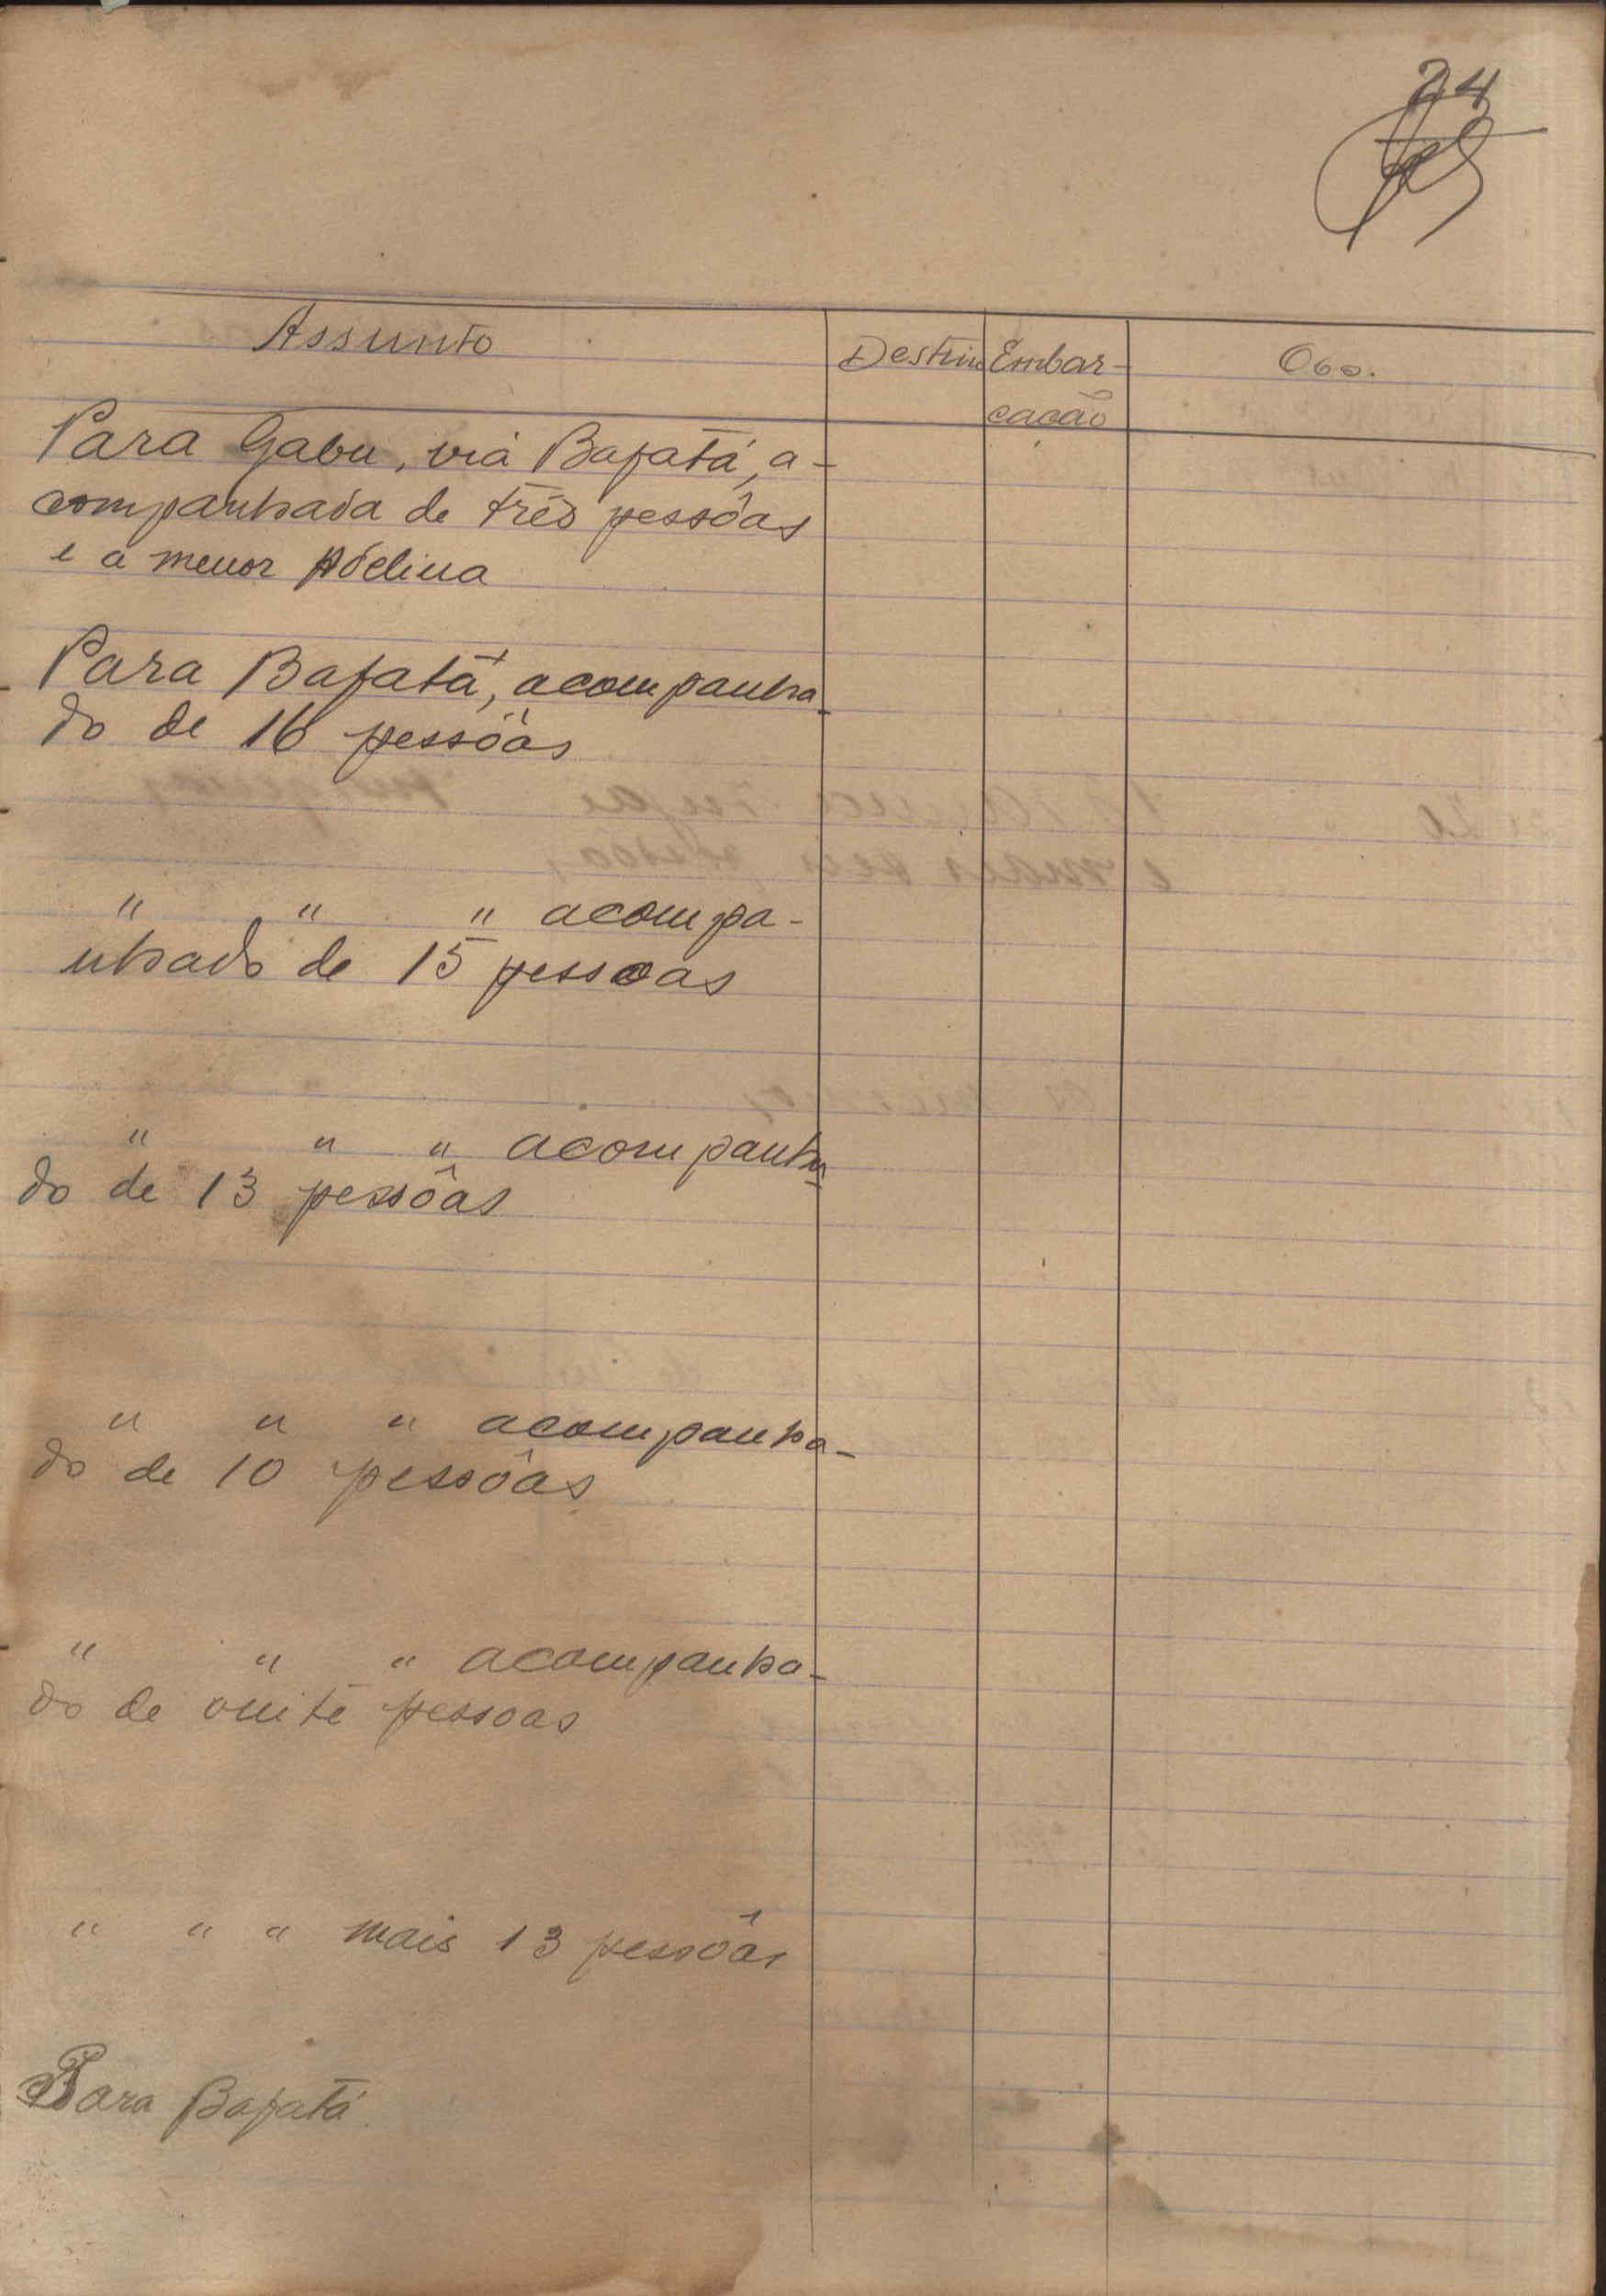 24
Assunto Destino Embar- Obs.
cacão
Para Gabu, viá Bafatá, a-
companhada de três pessôas
e a menor Adelina
Para Bafatá, acompanha-
do de 16 pessôas
" " " acompa-
nhado de 15 pessoas
" " " acompanha-
do de 13 pessôas
" " " acompanha-
do de 10 pessôas
" " " acompanha-
do de pessoas
" " " mais 13 pessôas
Para Bafatá